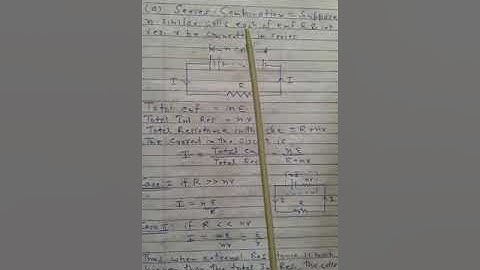 (a) Series Combination = Suppose
n similar cells each of emf E & int
res. r be connected in series
n
I
I
R
Total emf = nE
Total Int Res = nr
Total Resistance in the = R+nr
The current in the circuit is
I = Total emf / Total Res = nE / R+nr
Case I if R >> nr
I = nE / R
Case II: if R << nr
I = nE / nr = E / r
Thus when external Resistance is much
than the total Int Res. the cells